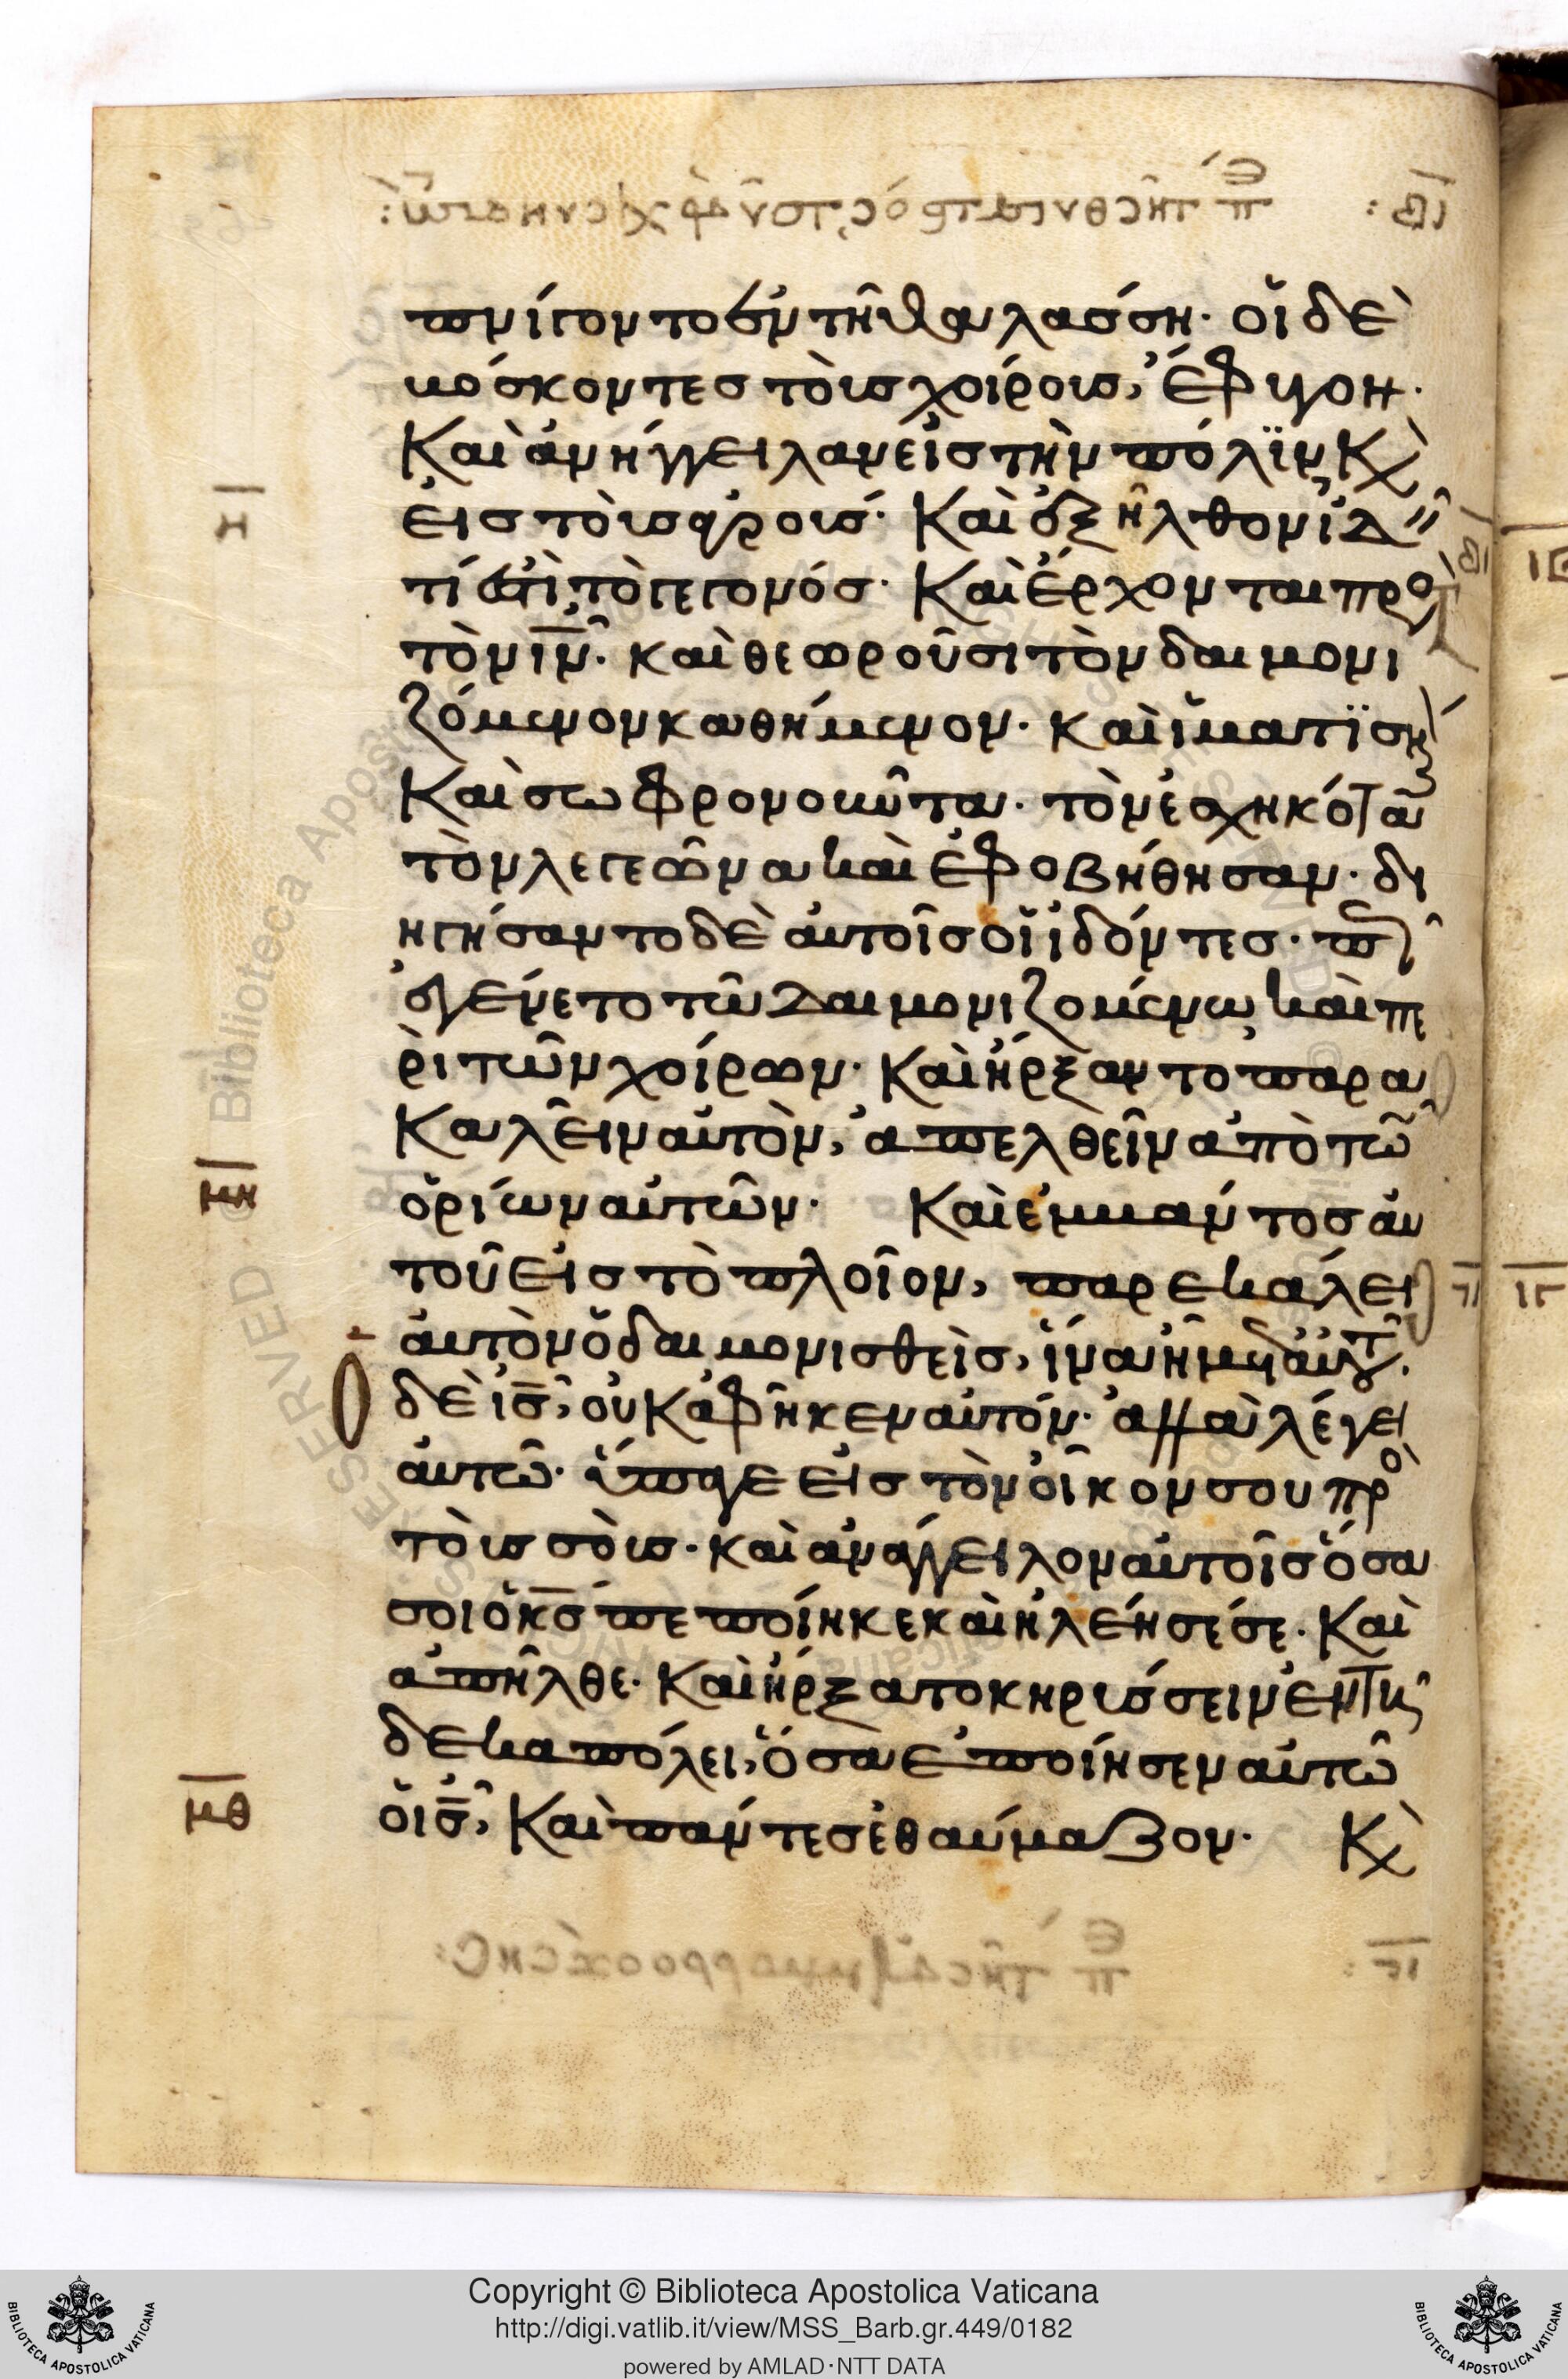 πνίγοντο ἐν τῆ θαλάσση· οἱ δὲ
βόσκοντες τοὺς χοίρους, ἔφυγον·
Καὶ ἀνήγγειλαν εἰς τὴν πόλϊν Κ̀
εἰς τοὺς ἀγρούς· Καὶ ἐξῆλθον ἰδεῖ
τί ἐστὶ τὸ γεγονός· Καὶ ἔρχονται προς
τὸν ι̅ν̅· καὶ θεωροῦσι τὸν δαιμονι
ζόμενον καθήμενον· καὶ ἱματϊσμένον
Καὶ σωφρονοῦντα· τὸν ἐσχηκότα
τὸν λεγεῶνα καὶ ἐφοβήθησαν· δι
ηγήσαντο δὲ αὐτοῖς οἱ ἰδόντες· πῶς
ἐγένετο τῶ δαιμονιζομένω καὶ πε
ρὶ τῶν χοίρων· Καὶ ἤρξαντο παρα
καλεῖν αὐτὸν, ἀπελθεῖν ἀπὸ τῶ
ὁρίων αὐτῶν· Καὶ ἐμβάντος αὐ
τοῦ εἰς τὸ πλοῖον, παρεκάλει
αὐτὸν ὁ δαιμονισθεὶς, ἵνα ἦ μετ' αὐτοῦ·
Ο δὲ ι̅ς̅, οὐκ ἀφῆκεν αὐτόν· ἀλλὰ λέγει
αὐτῶ· ὕπαγε εἰς τὸν οἶκον σου πρὸ
τοὺς σοὺς· καὶ ἀνάγγειλον αὐτοῖς ὅσα
σοι ὁ κ̅ς̅ πεποίηκε καὶ ἠλέησέ σε· Καὶ
ἀπῆλθε· Καὶ ἤρξατο κηρύσσειν ἐν τῆ
δεκαπόλει, ὅσα ἐποίησεν αὐτῶ
ὁ ι̅ς̅, Καὶ πάντες ἐθαύμαζον· Κ̀
Copyright © Biblioteca Apostolica Vaticana
http://digi.vatlib.it/view/MSS_Barb.gr.449/0182
powered by AMLAD·NTT DATA
BIBLIOTECA APOSTOLICA VATICANA
BIBLIOTECA APOSTOLICA VATICANA